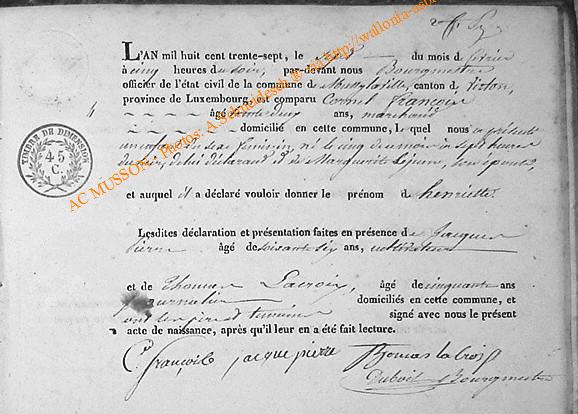 L'AN mil huit cent trente-sept, le six du mois de février
à cinq heures du soir, par-devant nous Bourgmestre
officier de l'état civil de la commune de Mussy la ville, canton de Virton,
province de Luxembourg, est comparu Cornil François
âgé trente deux ans, marchand
domicilié en cette commune, lequel nous a présenté
un enfant du sexe féminin, né le cinq du mois à sept heures
du soir, de lui déclarant et de Marguerite Lejeune, son épouse,
et auquel il a déclaré vouloir donner le prénom d henriette.
Lesdites déclaration et présentation faites en présence de Jacques
Pierre âgé de soixante six ans, cultivateur
et de Thomas Lacroix, âgé de cinquante ans
journalier domiciliés en cette commune, et
ont les père et témoins signé avec nous le présent
acte de naissance, après qu'il leur en a été fait lecture.
C. françois jacque pierre Thomas la Croix
Duboit Bourgmestre
TIMBRE DE DIMENSION
45
C.
AC MUSSON, Photos: A Schneidesch @ http://wallonia-asbl